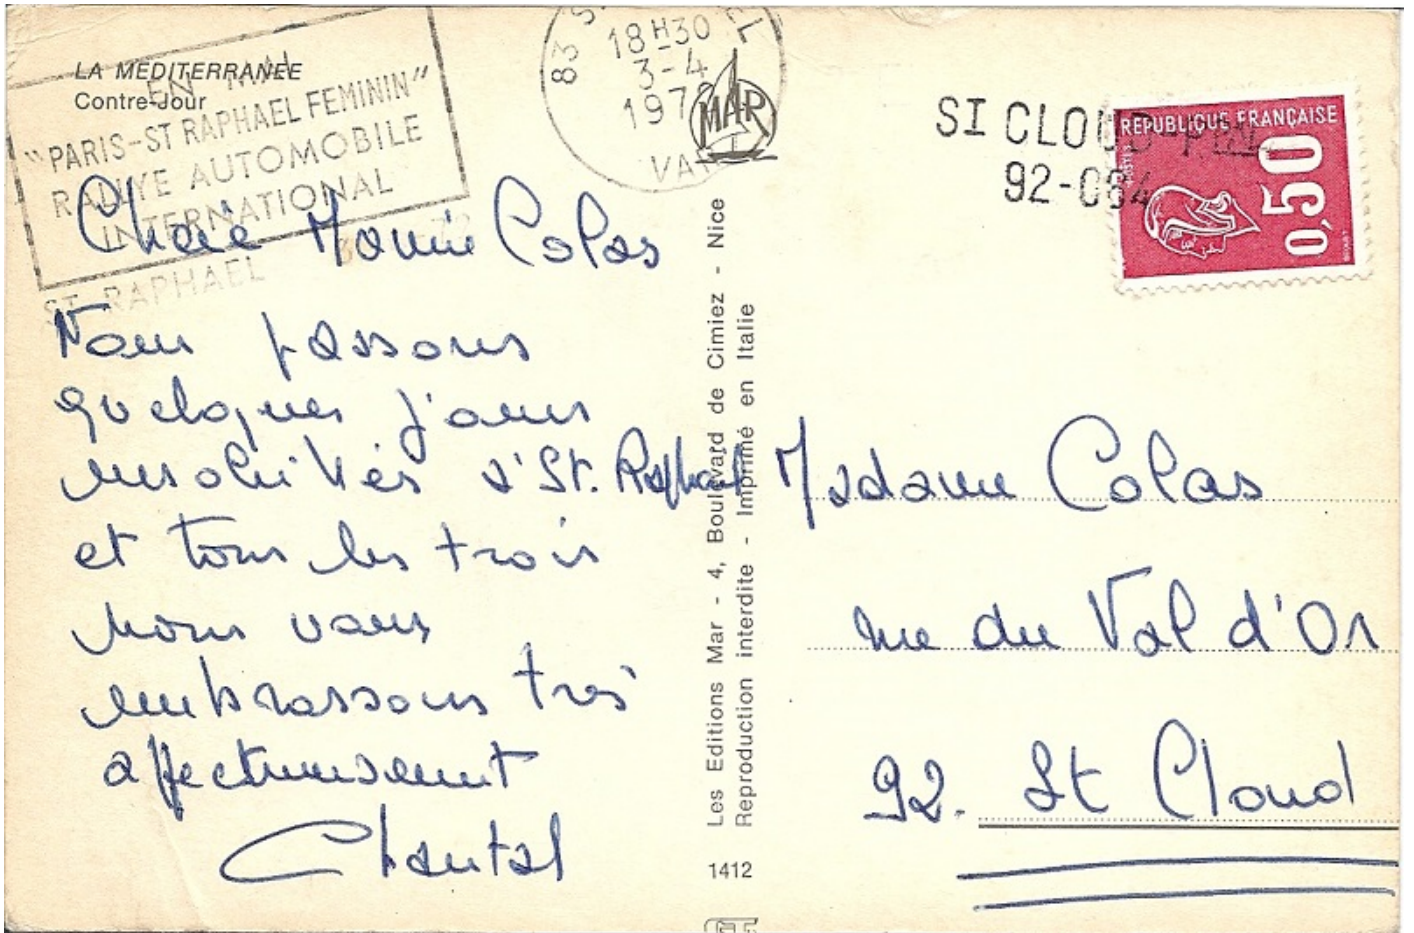 LA MÉDITERRANÉE
Contre-Jour
EN MAI
"PARIS-ST RAPHAEL FEMININ"
RALLYE AUTOMOBILE
INTERNATIONAL
ST RAPHAEL
18H30
3-4
VAR
MAR
ST CLOUD
92-064
REPUBLIQUE FRANÇAISE
0,50
Chère Mamie Colas
Nous passons
quelques jours
ensoleillés à St. Raphaël
et tous les trois
nous vous
embrassons très
affectueusement
Chantal
Les Editions Mar - 4, Boulevard de Cimiez - Nice
Reproduction interdite - Imprimé en Italie
1412
Madame Colas
rue du Val d'Or
92. St Cloud